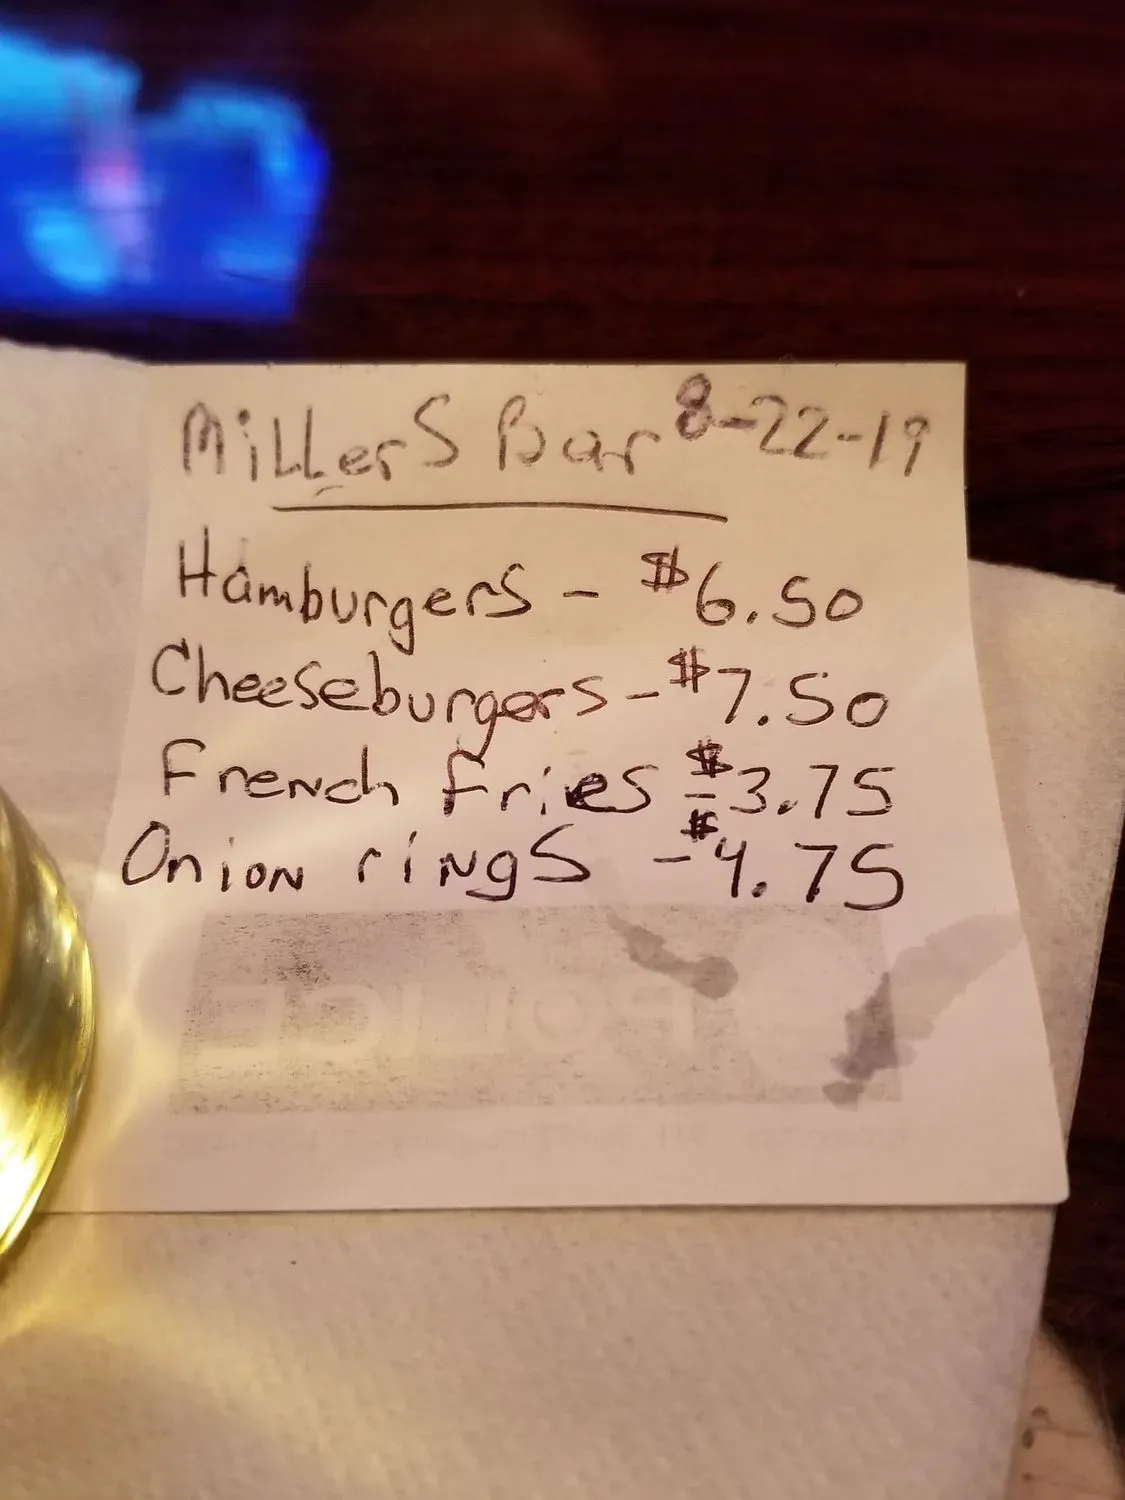 Millers Bar 8-22-19
Hamburgers - $6.50
Cheeseburgers - $7.50
French fries - $3.75
Onion rings - $4.75
POLICE